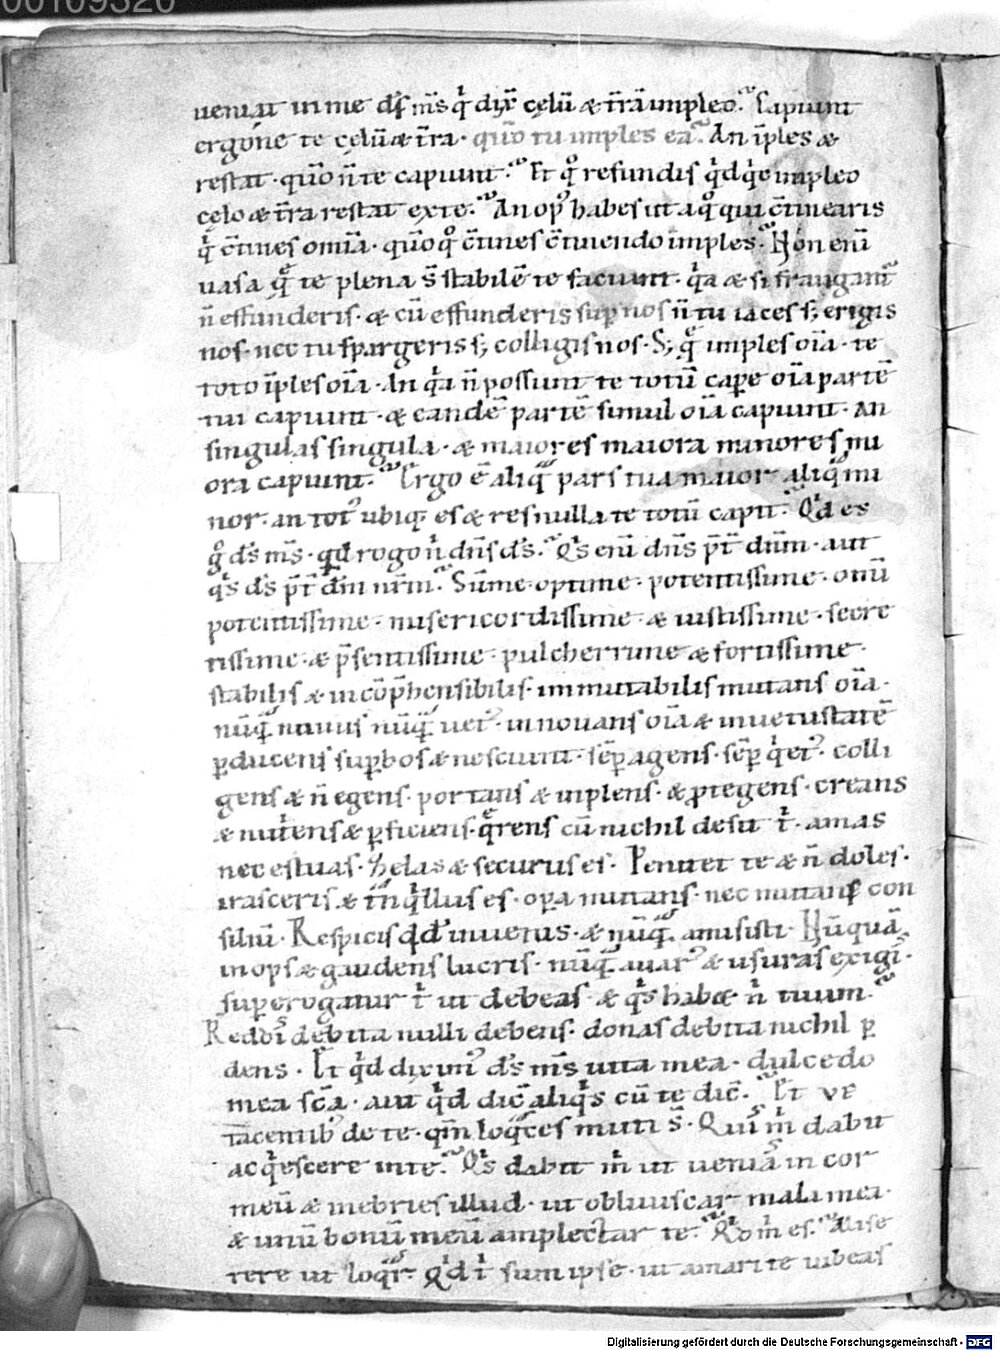 00109320
ueniat in me d̄s m̄s q̇ dix̄ cęlū & t̄rā impleo. Capiunt
ergóne te cęlū & t̄ra. quō tu imples ea. An īples &
restat. quō n̄ te capiunt. Et q° refundis q̇dq̇d impleo
cęlo & t̄ra restat ex te. An op' habes ut a q°quā c̄tinearis
q̇ c̄tines omīa. quō q° c̄tines c̄tinendo imples. Non enī
uasa q̄ te plena s̄ stabilē te faciunt. q̇a & si frangant'
n̄ effunderis. & cū effunderis sup nos n̄ tu iaces s; erigis
nos. nec tu spargeris s; colligis nos. S; q̄ imples oīa. te
toto īples oīa. An q̇a n̄ possunt te totū cape oīa partē
tui capiunt. & eandē partē simul oīa capiunt. An
singulas singula. & maiores maiora minores mi
ora capiunt. Ergo ē aliq̄ pars tua maior aliq̄ mi
nor. an tot' ubiq; es & res nulla te totū capit. Q̇d es
g° d̄s m̄s. q̇d rogo n̄ dn̄s d̄s. Q̇s enī dn̄s p̄t dn̄m. aut
q̇s d̄s p̄t dm̄ nr̄m. Sūme. optime. potentissime. omī
potentissime. misericordissime & iustissime. secre
tissime. & p̄sentissime. pulcherrime & fortissime.
stabilis & incōp̄hensibilis. immutabilis mutans oīa.
nūq̄ nouus nūq̄ uet'. innouans oīa & in uetustatē
pducens supbos & nesciunt. sēp agens. sēp q̇et'. colli
gens & n̄ egens. portans & inplens. & ptegens. creans
& nut̄ens & pficiens. q̄rens cū nichil desit t̄. amas
nec estuas. Zelas & securus es. Penitet te & n̄ doles.
irasceris & tn̄q̇llus es. opa mutans. nec mutans con
siliū. Respicis q̇d inuenis. & nūq̄ amisisti. Nūquā
inops & gaudens lucris. nūq̄ auar' & usuras exigi.
superogatur t̄ ut debeas & q̇s hab& n̄ tuum.
Reddis debita nulli debens. donas debita nichil p
dens. Et q̇d dixim' d̄s m̄s uita mea. dulcedo
mea sc̄a. aut q̇d dic̄ aliq̇s cū te dic̄. Et ve
tacentib' de te. qm̄ loq̄ces muti s̄. Quis m̄ dabit
acq̇escere in te. Q̇s dabit m̄ ut uenias in cor
meū & inebries illud. ut obliuiscar mala mea.
& unū bonū meū amplectar te. Q̇d m̄ es. Mise
rere ut loq̄r. Q̇d t̄ sum ipse. ut amari te iubeas
Digitalisierung gefördert durch die Deutsche Forschungsgemeinschaft - DFG